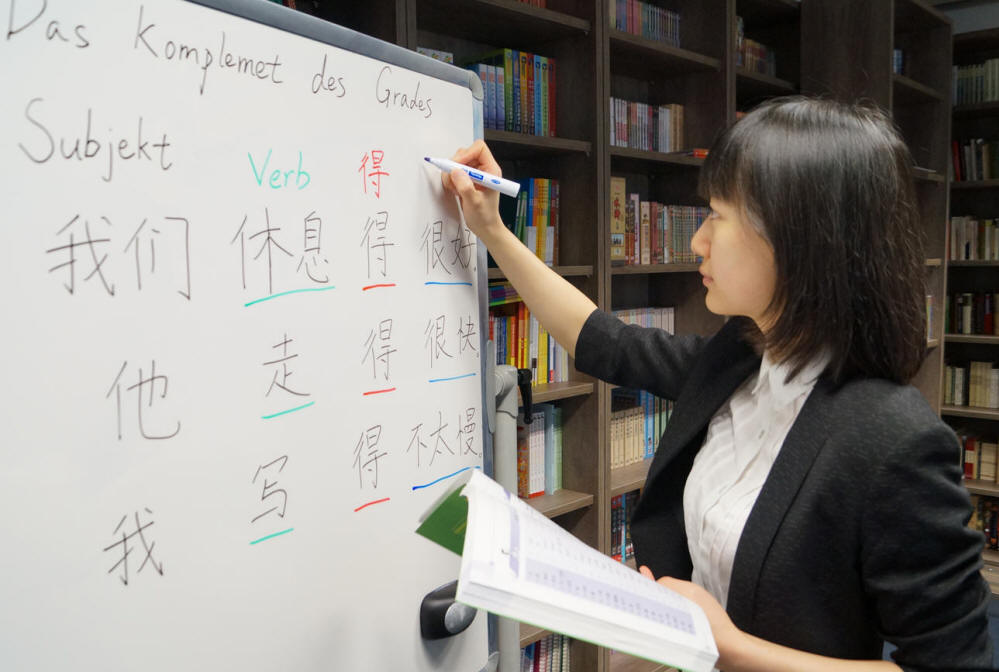 Das Komplemet des Grades
Subjekt Verb 得
我们 休息 得 很好。
他 走 得 很快。
我 写 得 不太慢。